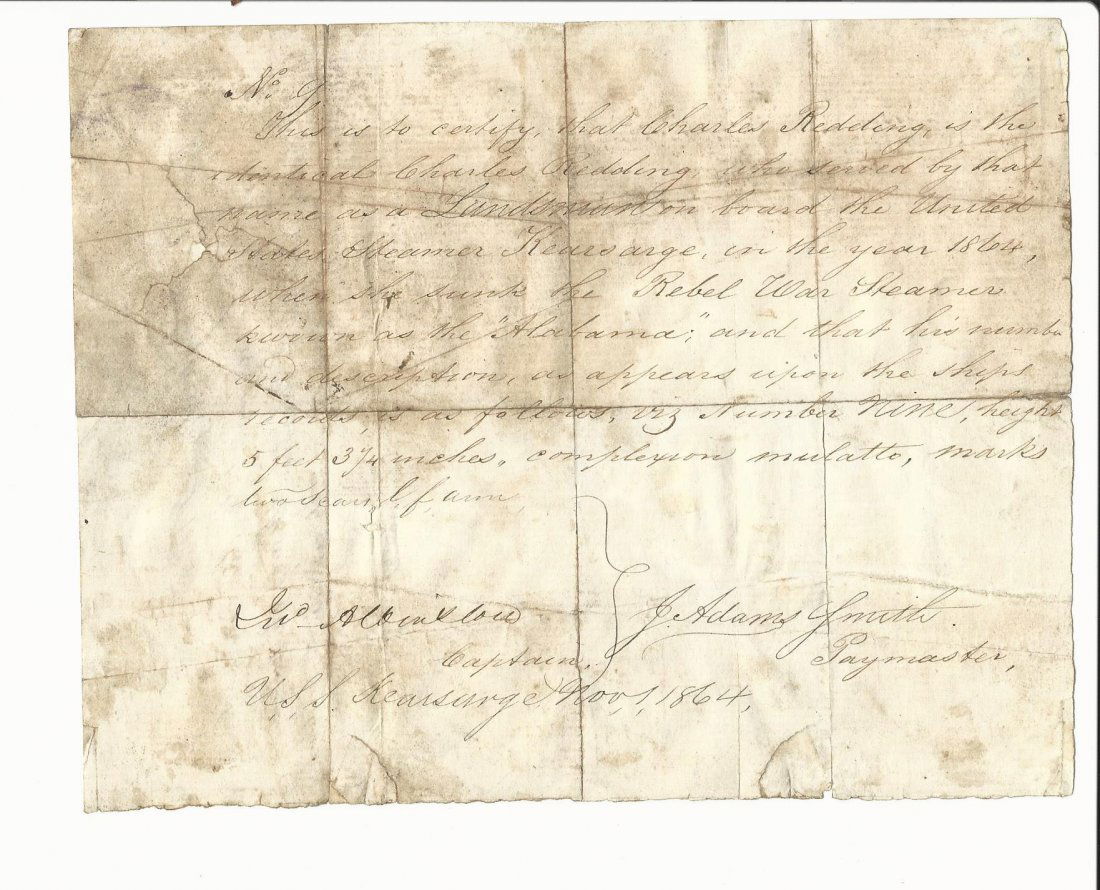 No. 9
This is to certify, that Charles Redding, is the
identical Charles Redding, who served by that
name as a Landsman on board the United
States Steamer Kearsarge, in the year 1864,
when she sunk the Rebel War Steamer
known as the "Alabama;" and that his number
and description, as appears upon the ships
records, is as follows, viz Number Nine, height
5 feet 3 1/4 inches, complexion mulatto, marks
two scars l, f, arm,
Jno A Winslow
Captain,
J Adams Smith
Paymaster,
U,S,S. Kearsarge, Nov, 1, 1864,